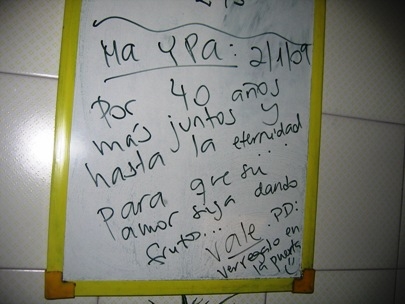 Ma Y Pa: 2/1/09
Por 40 años
más juntos y
hasta la eternidad
...
Para que su
amor siga dando
fruto...
Vale. PD:
ver regalo en
la puerta